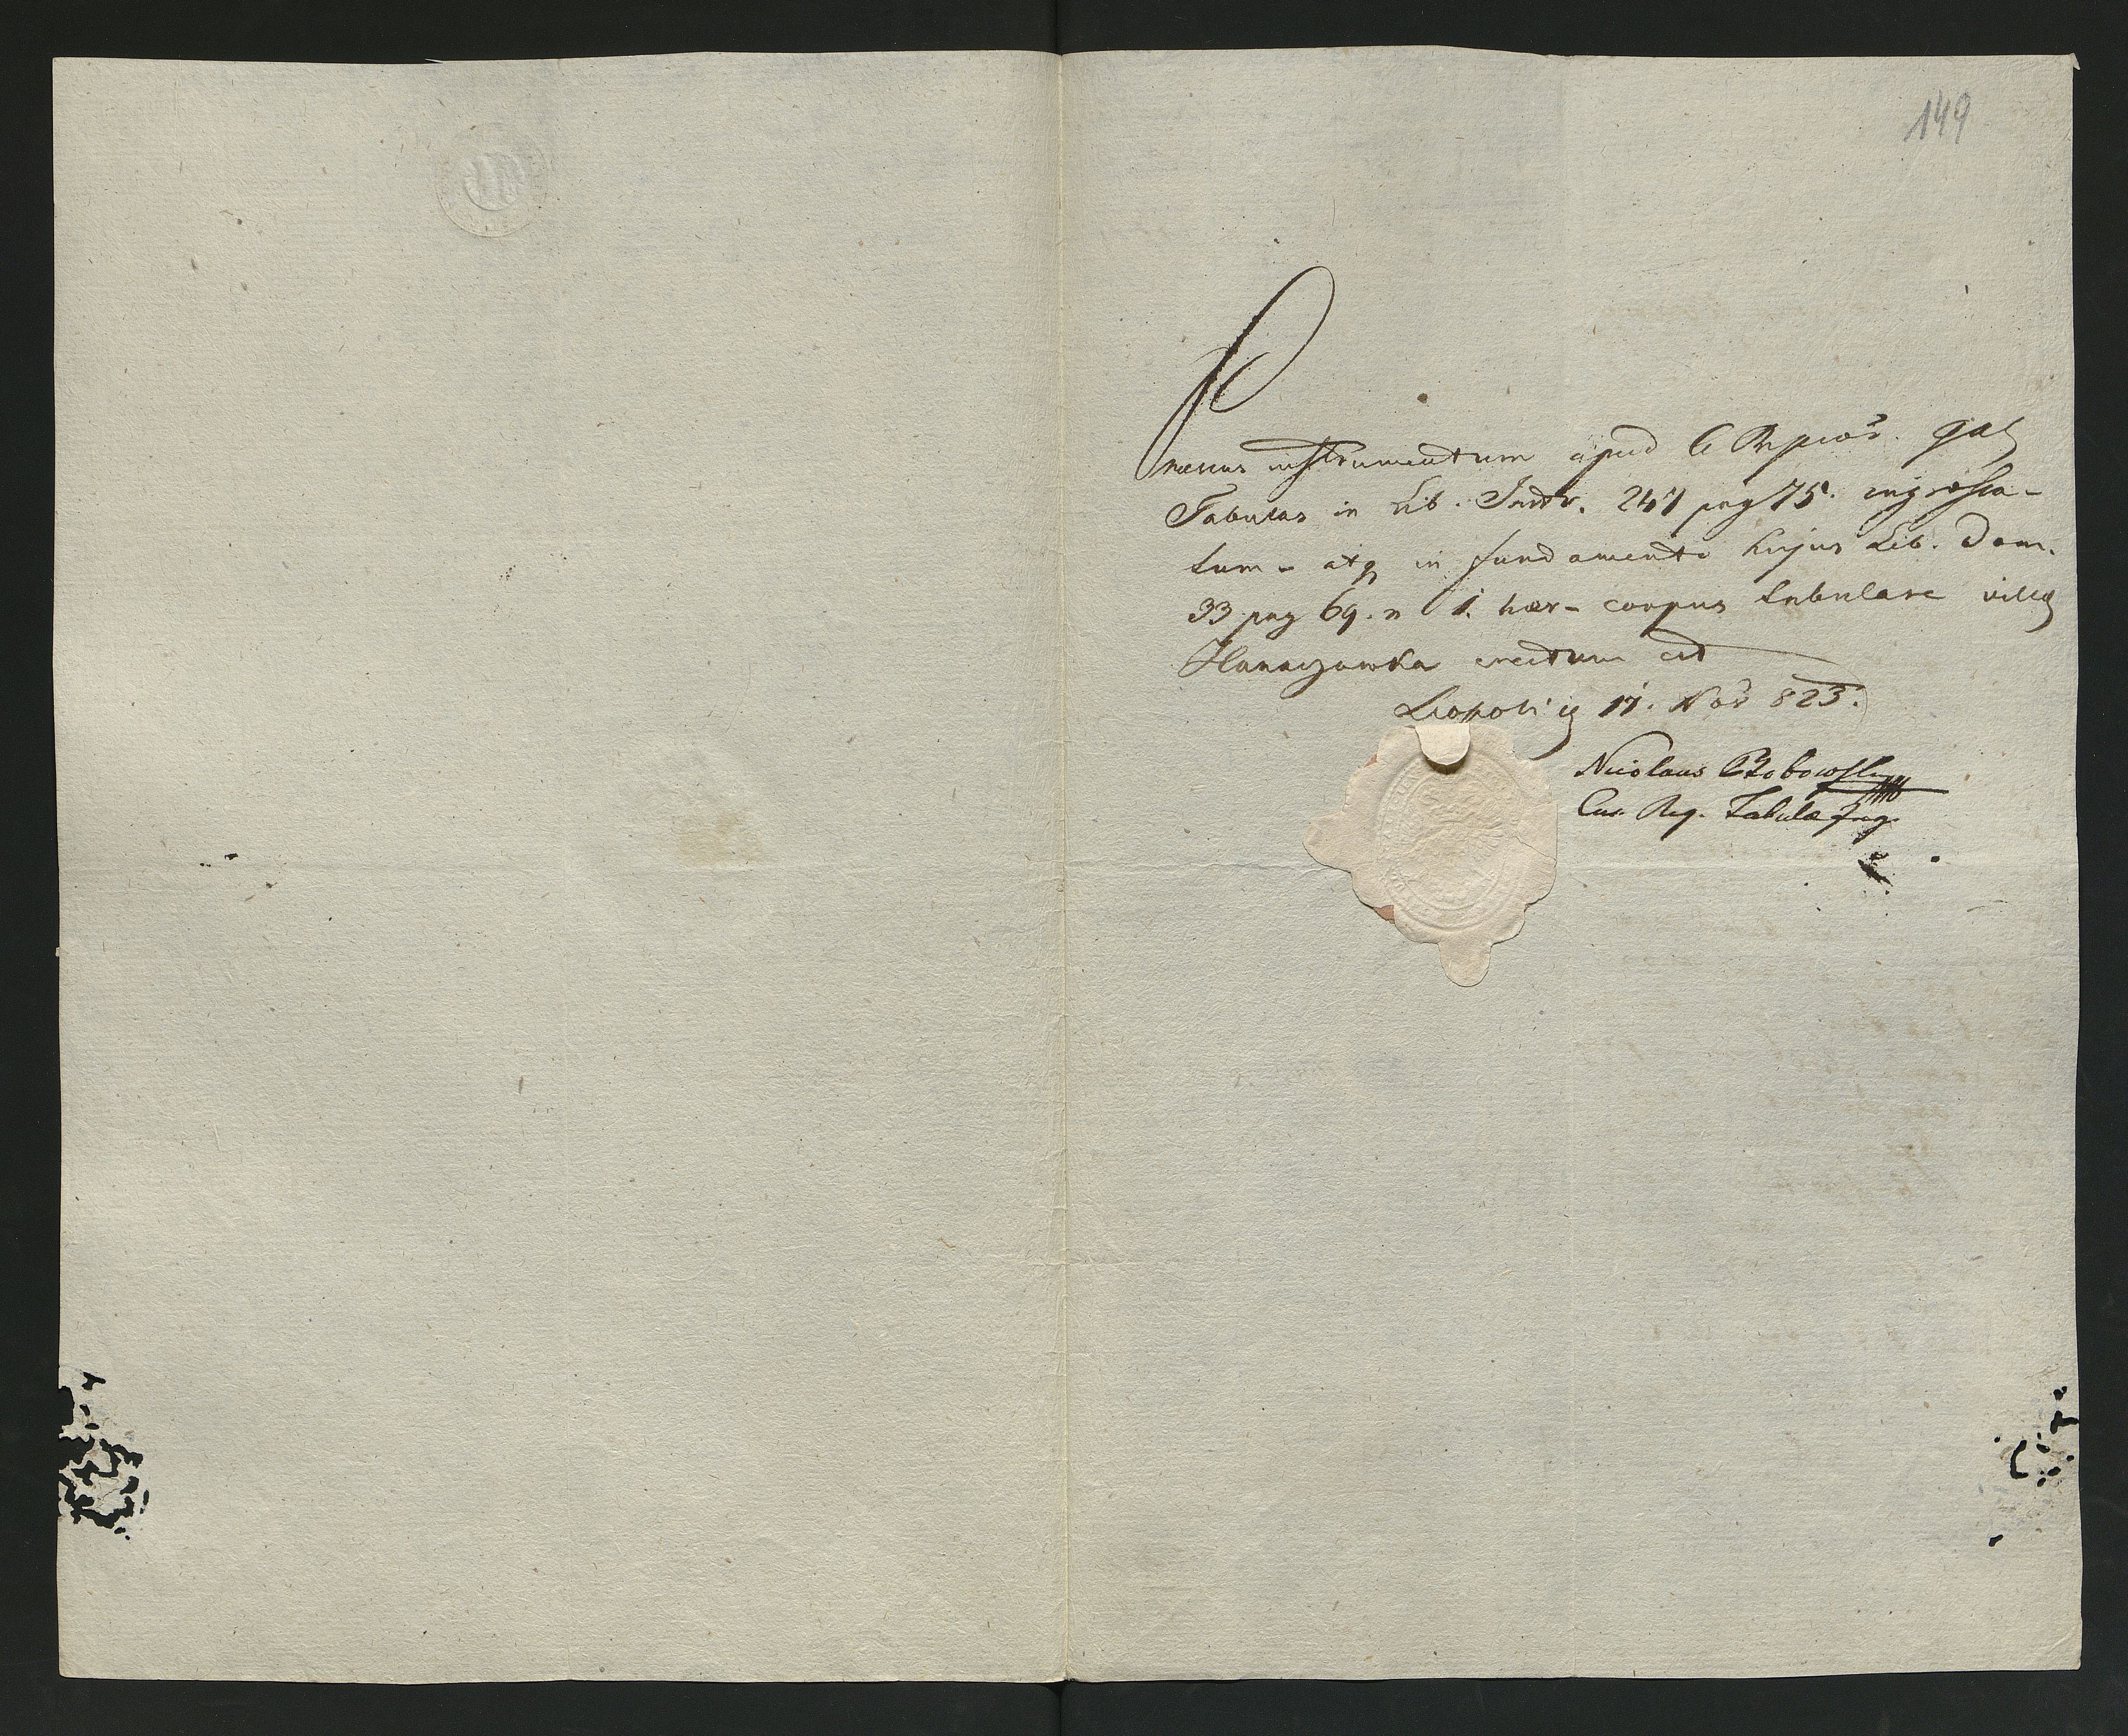 149
Præsens instrumentum apud C. R. Prov. Gal.
Tabulas in Lib. Instr. 247 pag 75. ingrossa-
tum - atq in fundamento hujus Lib. Dom.
33 pag 69. n 1. hær- corpus tabulare villæ
Hanaczowka erectum est
Leopoli 17. Nov 823.
Nicolaus Bobowski
Cæs. Reg. Tabulæ Ing.